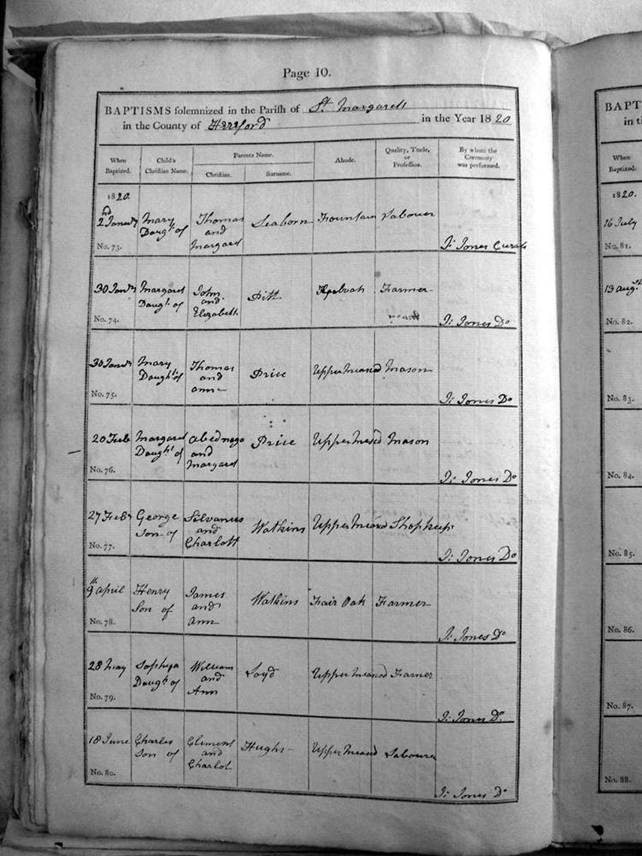 Page 10.
BAPTISMS solemnized in the Parish of St Margarets
in the County of Hereford in the Year 1820
When Baptized. Child's Christian Name. Parents Name. Abode. Quality, Trade, or Profession. By whom the Ceremony was performed.
Christian. Surname.
1820.
2nd Janry Mary Thomas Seaborn Fountain Labouer
Daught of and
No. 73. Margaret J: Jones Curate
30 Janry Margaret John Pitt Farmer
Daught of and
Elizabeth
No. 74. J: Jones Do
30 Janry Mary Thomas Price Upper Mased Mason
Daught of and
No. 75. ann J: Jones Do
20 Feb Margaret abednego Price Upper Mased Mason
Daught of and
No. 76. Margaret J: Jones Do
27 Feby George Silvanus Watkins Upper Shopkeepr
Son of and
No. 77. Charlott J: Jones Do
9th april Henry James Watkins Fair Oak Farmer
Son of and
No. 78. ann J: Jones Do
28 May Sophya William Loyd Upper Farmer
Daught of and
No. 79. Ann J: Jones Do
18 June Charles Clement Hughs Upper Labourer
Son of and
No. 80. Charlot J: Jones Do
BAPT
in t
1820.
16 July
No. 81.
13 augt
No. 82.
No. 83.
No. 84.
No. 85.
No. 86.
No. 87.
No. 88.